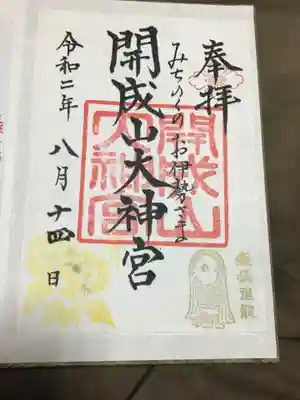 奉拝
みちのくのお伊勢さま
開成山大神宮
開成山大神宮
令和二年 八月 十四日